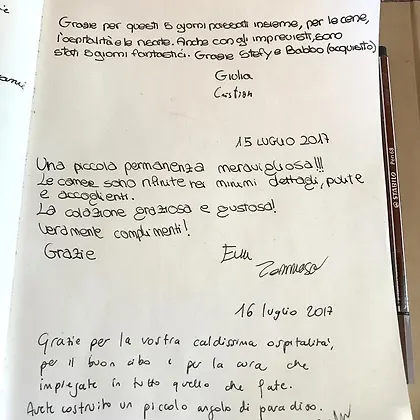 Grazie per questi 5 giorni passati insieme, per le cene,
l'ospitalità e le risate. Anche con gli imprevisti, sono
stati 5 giorni fantastici. Grazie Stefy e Babbo (acquisito)
Giulia
Cristian
15 LUGLIO 2017
Una piccola permanenza meravigliosa!!!
Le camere sono rifinite nei minimi dettagli, pulite
e accoglienti.
La colazione graziosa e gustosa!
Veramente complimenti!
Grazie
Tommaso
16 luglio 2017
Grazie per la vostra caldissima ospitalità,
per il buon cibo e per la cura che
impiegate in tutto quello che fate.
Avete costruito un piccolo angolo di paradiso.
STABILO